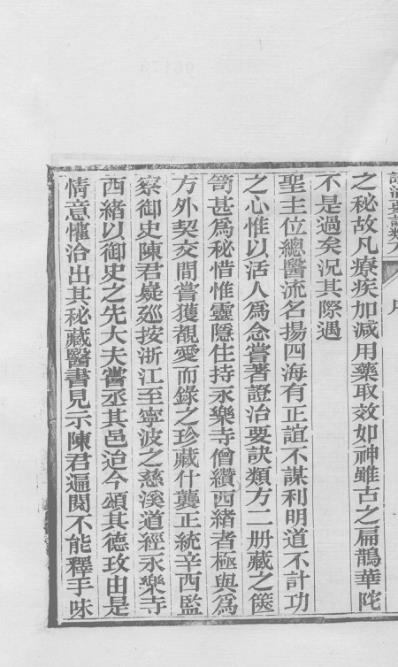 之秘故凡療疾加減用藥取效如神雖古之扁鵲華陀
不是過矣況其際遇
聖主位總醫流名揚四海有正誼不謀利明道不計功
之心惟以活人為念嘗著證治要訣類方二册藏之篋
笥甚為秘惜惟靈隱住持永樂寺僧纘西緒者極與為
方外契交間嘗獲覩愛而錄之珍藏什襲正統辛酉監
察御史陳君嶷廵按浙江至寧波之慈溪道經永樂寺
西緒以御史之先大夫嘗丞其邑迨今頌其德政由是
情意懽洽出其秘藏醫書見示陳君遍閱不能釋手味